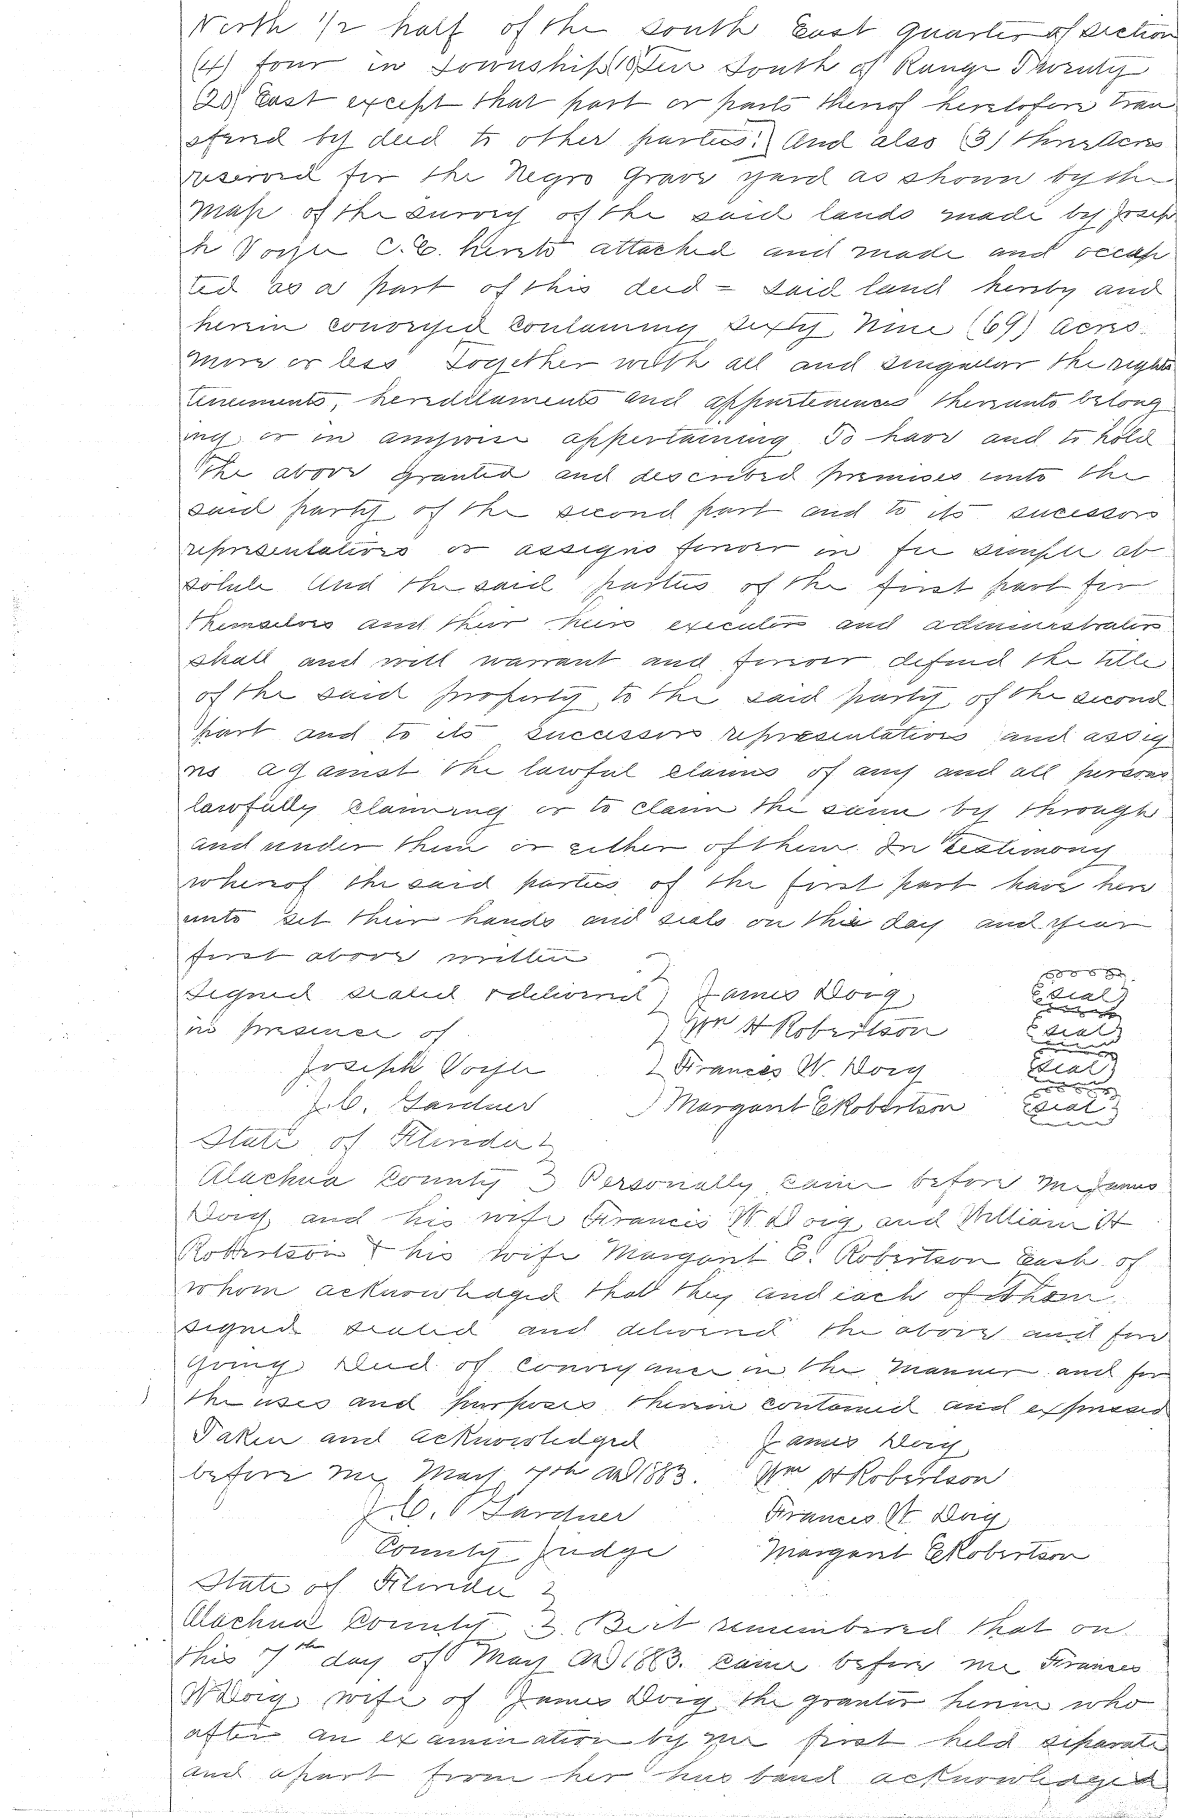 North 1/2 half of the south East quarter of section
(4) four in Township (10) Ten South of Range Twenty
(20) East except that part or parts thereof heretofore tran
sfered by deed to other parties.) And also (3) three Acres
reserved for the Negro Grave yard as shown by the
Map of the survey of the said lands made by Josep
h Voyle C.E. hereto attached and made and accep
ted as a part of this deed = said land hereby and
herein conveyed containing Sixty Nine (69) acres.
More or less Together with all and singular the rights
tenements, hereditaments and appurtenences thereunto belong
ing or in anywise appertaining To have and to hold
the above granted and described premises unto the
said party of the second part and to its sucessors
representatives or assigns forever in fee simple ab
solute And the said parties of the first part for
themselves and their heirs executors and administrators
shall and will warrant and forever defend the title
of the said property to the said party of the second
part and to its successors representatives and assig
ns against the lawful claims of any and all persons
lawfully claiming or to claim the same by through
and under them or either of them. In Testimony
whereof the said parties of the first part have here
unto set their hands and seals on this day and year
first above written
Signed sealed & delivered } James Doig (seal)
in presence of } Wm H Robertson (seal)
Joseph Voyle } Frances W. Doig (seal)
J.C. Gardner ) Margaret E Robertson (seal)
State of Florida }
Alachua County } Personally came before me James
Doig and his wife Francis W Doig and William H
Robertson & his wife Margaret E. Robertson Each of
whom acknowledged that they and each of them
signed sealed and delivered the above and fore
going Deed of conveyance in the manner and for
the uses and purposes therein contained and expressed
Taken and acknowledged James Doig
before me May 7th AD 1883. Wm H Robertson
J.C. Gardner Frances W. Doig
County Judge Margaret E Robertson
State of Florida }
Alachua County } Be it remembered that on
this 7th day of May AD 1883. came before me Frances
W Doig wife of James Doig the grantor herein who
after an examination by me first held separate
and apart from her husband acknowledged